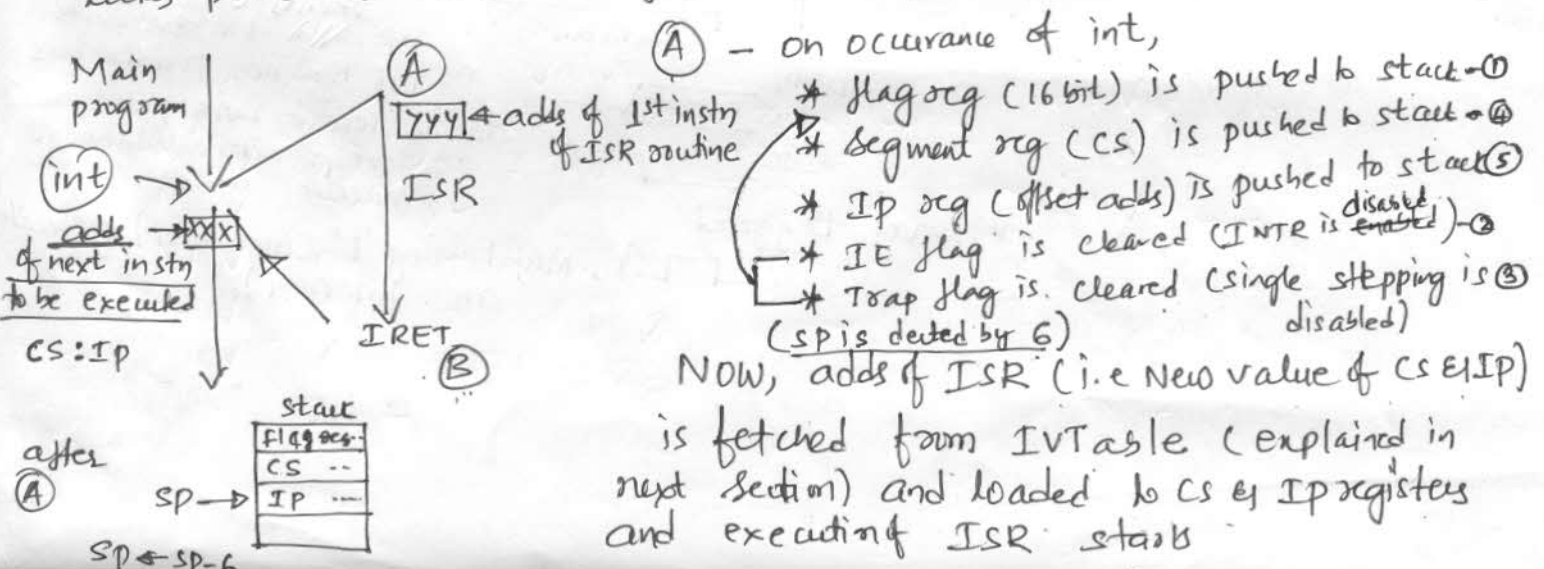 Main
program
int
adds
of next instn
to be executed
CS:Ip
XXX
A
YYY ← adds of 1st instn
of ISR routine
ISR
IRET
B
A - on occurance of int,
* flag reg (16 bit) is pushed to stack -①
* Segment reg (CS) is pushed to stack -④
* Ip reg (offset adds) is pushed to stack ⑤
* IE flag is cleared (INTR is disabled enabled) -②
* Trap flag is cleared (single stepping is ③
disabled)
(SP is dected by 6)
Now, adds of ISR (i.e New value of CS & IP)
is fetched from IVTable (explained in
next section) and loaded to CS & Ip registers
and executing ISR starts
after
A
stack
Flag reg..
CS ..
SP → IP ....
SP ← SP-6